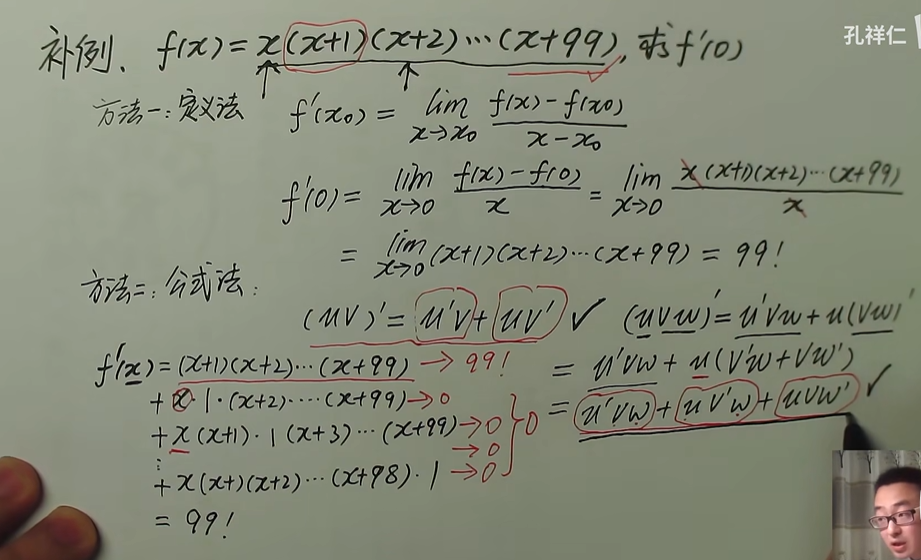 孔祥仁
补例、f(x) = x(x+1)(x+2)⋯(x+99), 求f'(0)
方法一：定义法 f'(x₀) = lim x→x₀ (f(x)-f(x₀))/(x-x₀)
f'(0) = lim x→0 (f(x)-f(0))/x = lim x→0 (x(x+1)(x+2)⋯(x+99))/x
= lim x→0 (x+1)(x+2)⋯(x+99) = 99!
方法二：公式法：
(uv)' = u'v + uv' ✓ (uvw)' = u'vw + u(vw)'
f'(x) = (x+1)(x+2)⋯(x+99) → 99! = u'vw + u(v'w+vw')
+ x·1·(x+2)⋯(x+99) → 0 = u'vw + uv'w + uvw' ✓
+ x(x+1)·1(x+3)⋯(x+99) → 0 } 0
⋮ → 0
+ x(x+)(x+2)⋯(x+98)·1 → 0
= 99!